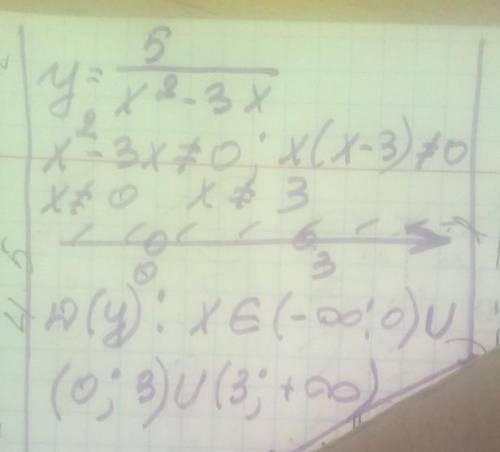 y = 5/(x² - 3x)
x² - 3x ≠ 0; x(x-3) ≠ 0
x ≠ 0 x ≠ 3
0 3
D(y): x ∈ (-∞; 0) ∪
(0; 3) ∪ (3; +∞)